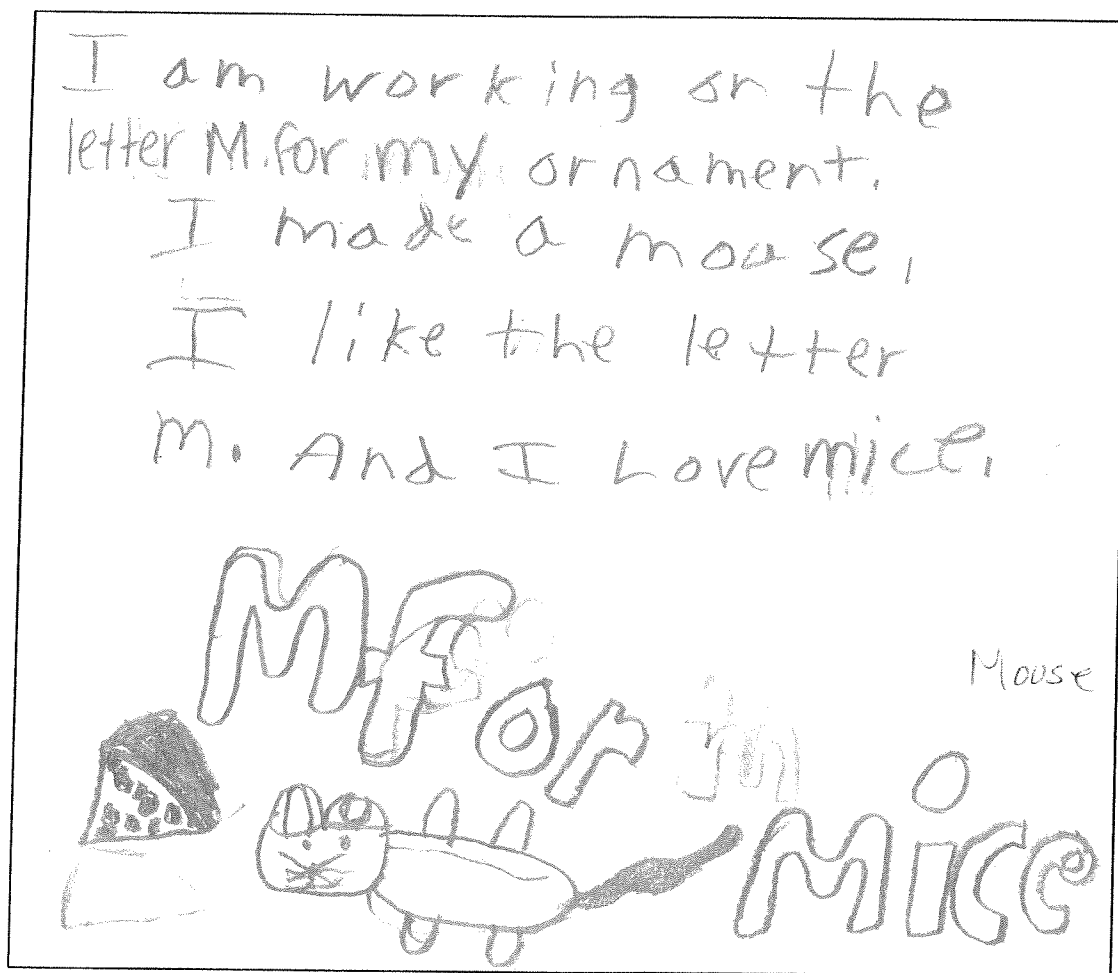 I am working on the
letter M for my ornament.
I made a mouse.
I like the letter
M. And I Love mice.
M For
Mouse
Mice